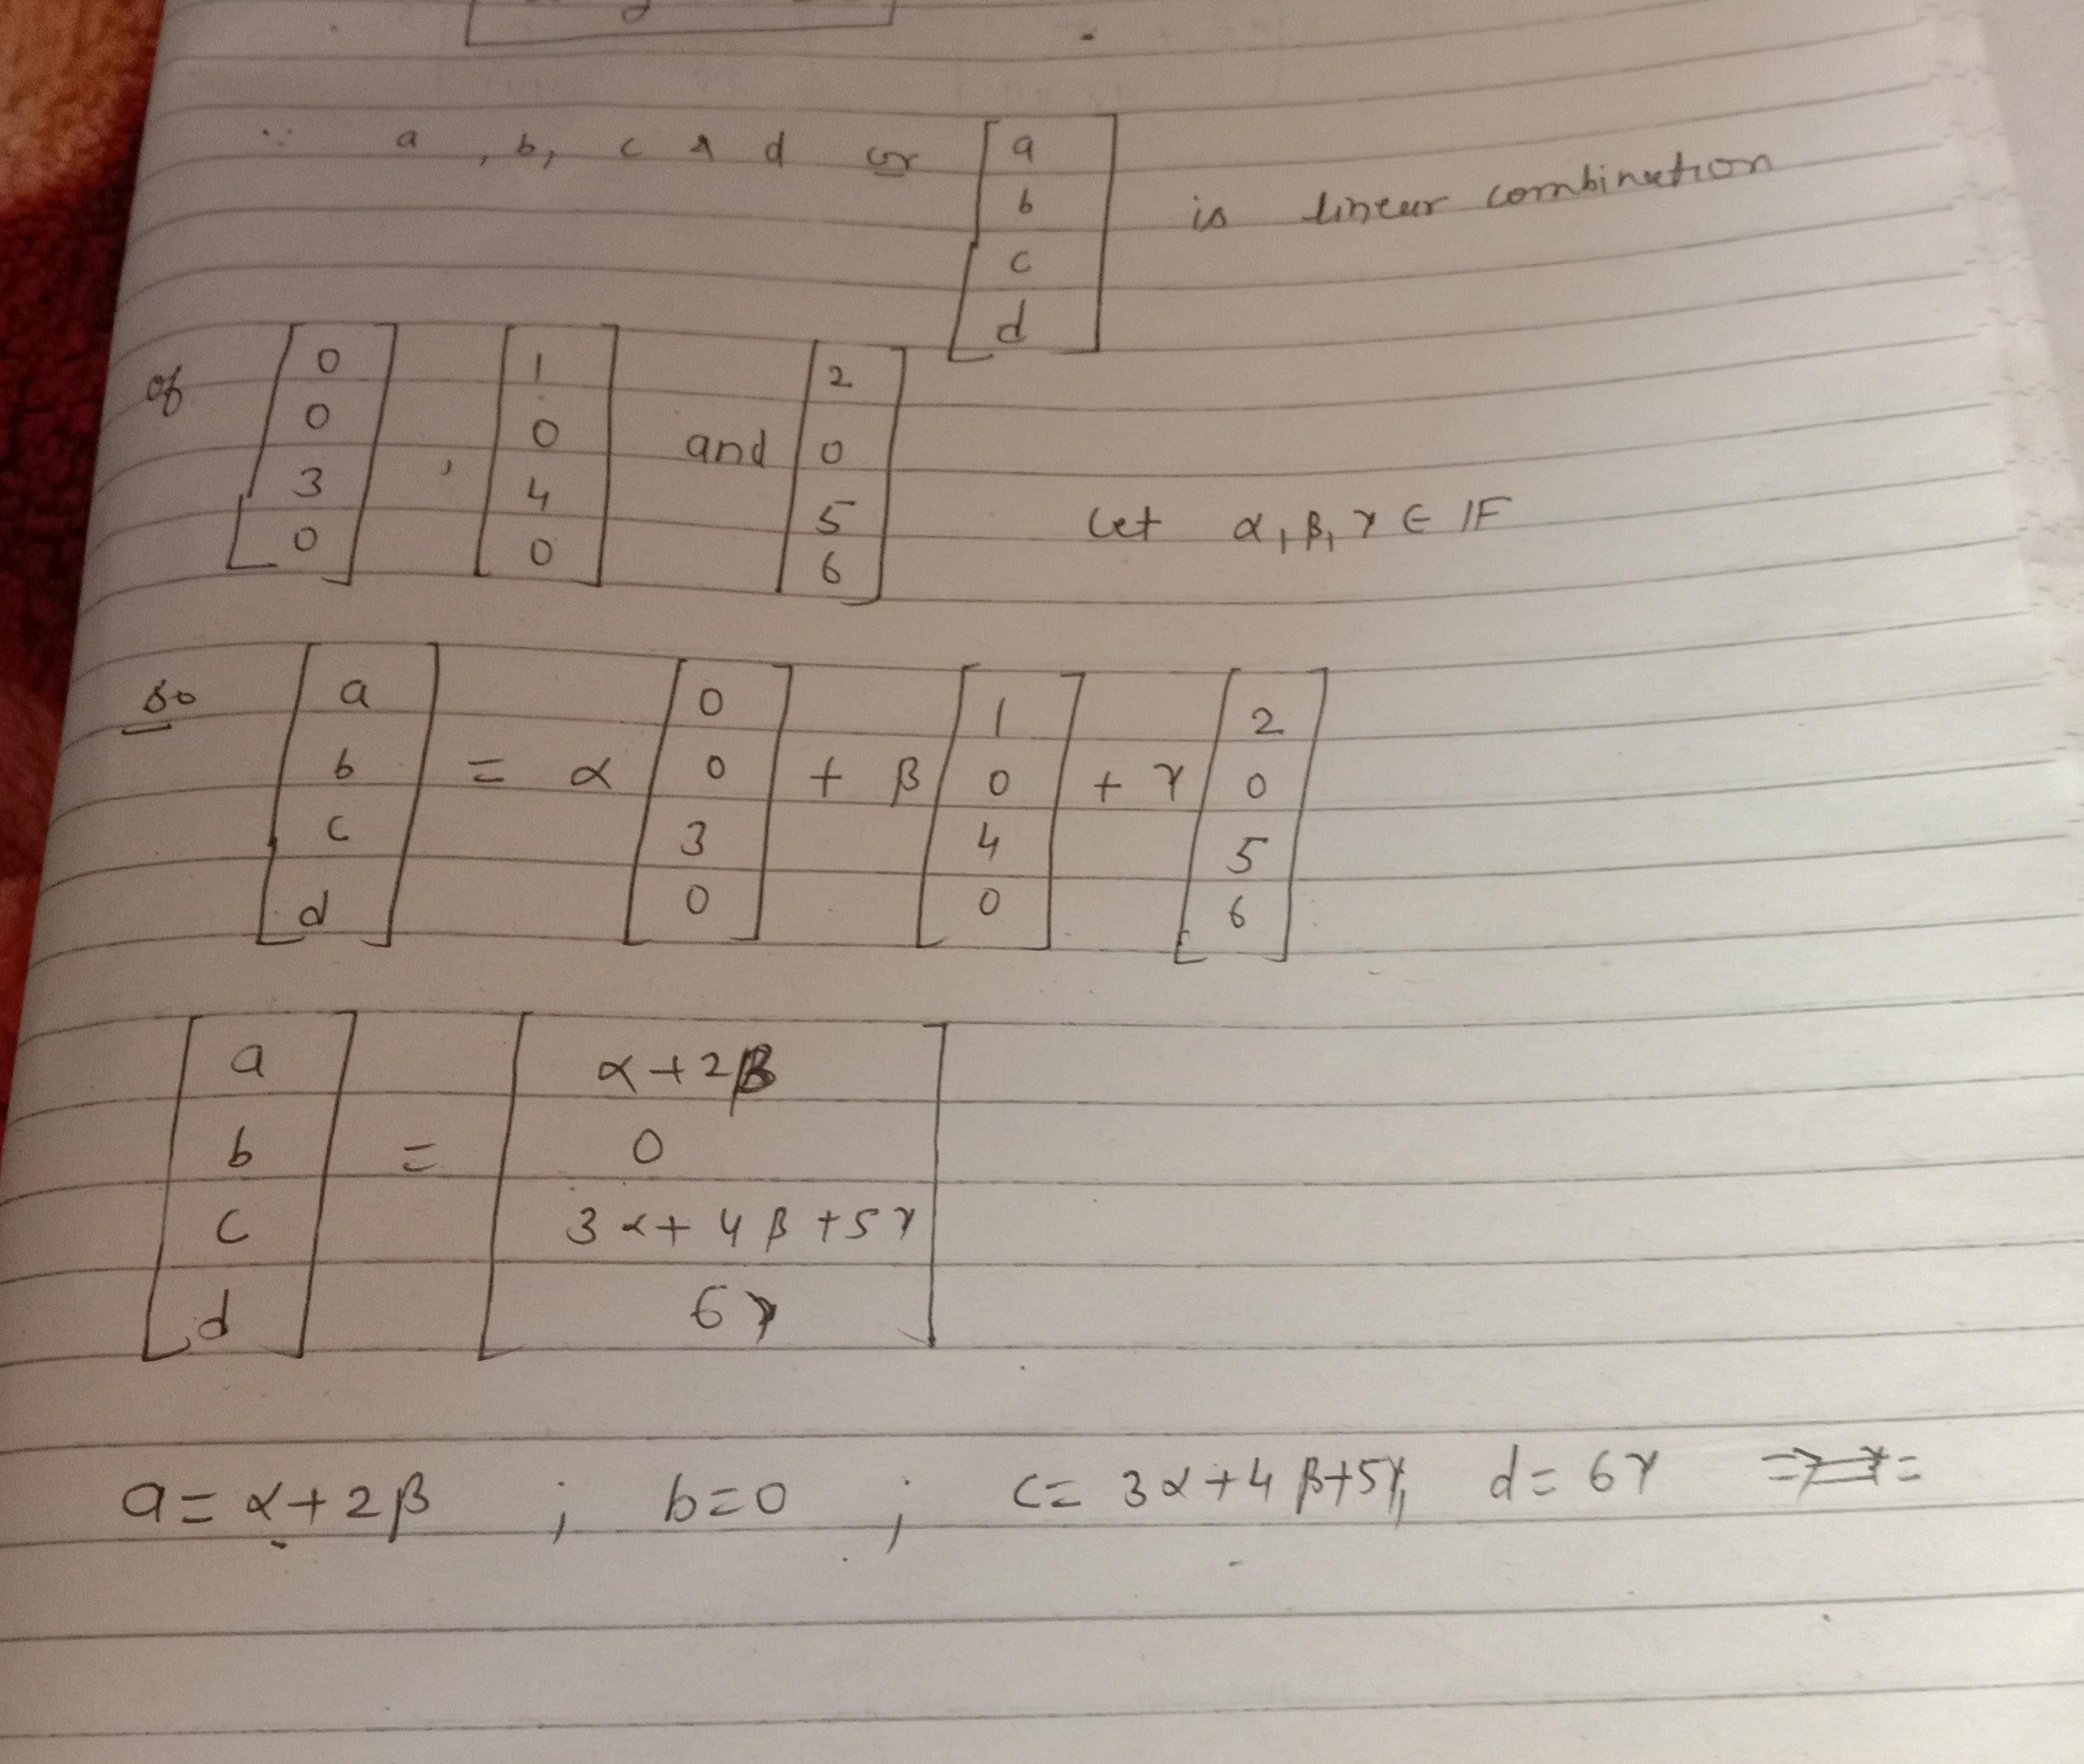 ∵ a, b, c & d or [a b c d] is linear combination
of [0 0 3 0], [1 0 4 0] and [2 0 5 6] Let α, β, γ ∈ IF
so [a b c d] = α [0 0 3 0] + β [1 0 4 0] + γ [2 0 5 6]
[a b c d] = [α+2β 0 3α+4β+5γ 6γ]
a = α+2β ; b=0 ; c= 3α+4β+5γ, d=6γ